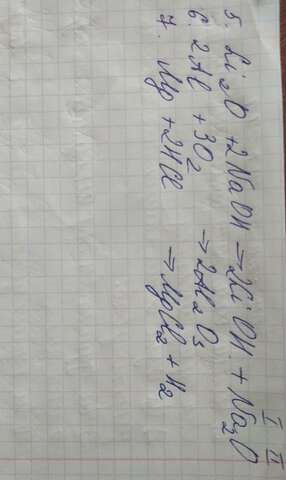 I II
5. Li₂O + 2NaOH → 2LiOH + Na₂O
6. 2Al + 3O₂ → 2Al₂O₃
7. Mg + 2HCl → MgCl₂ + H₂